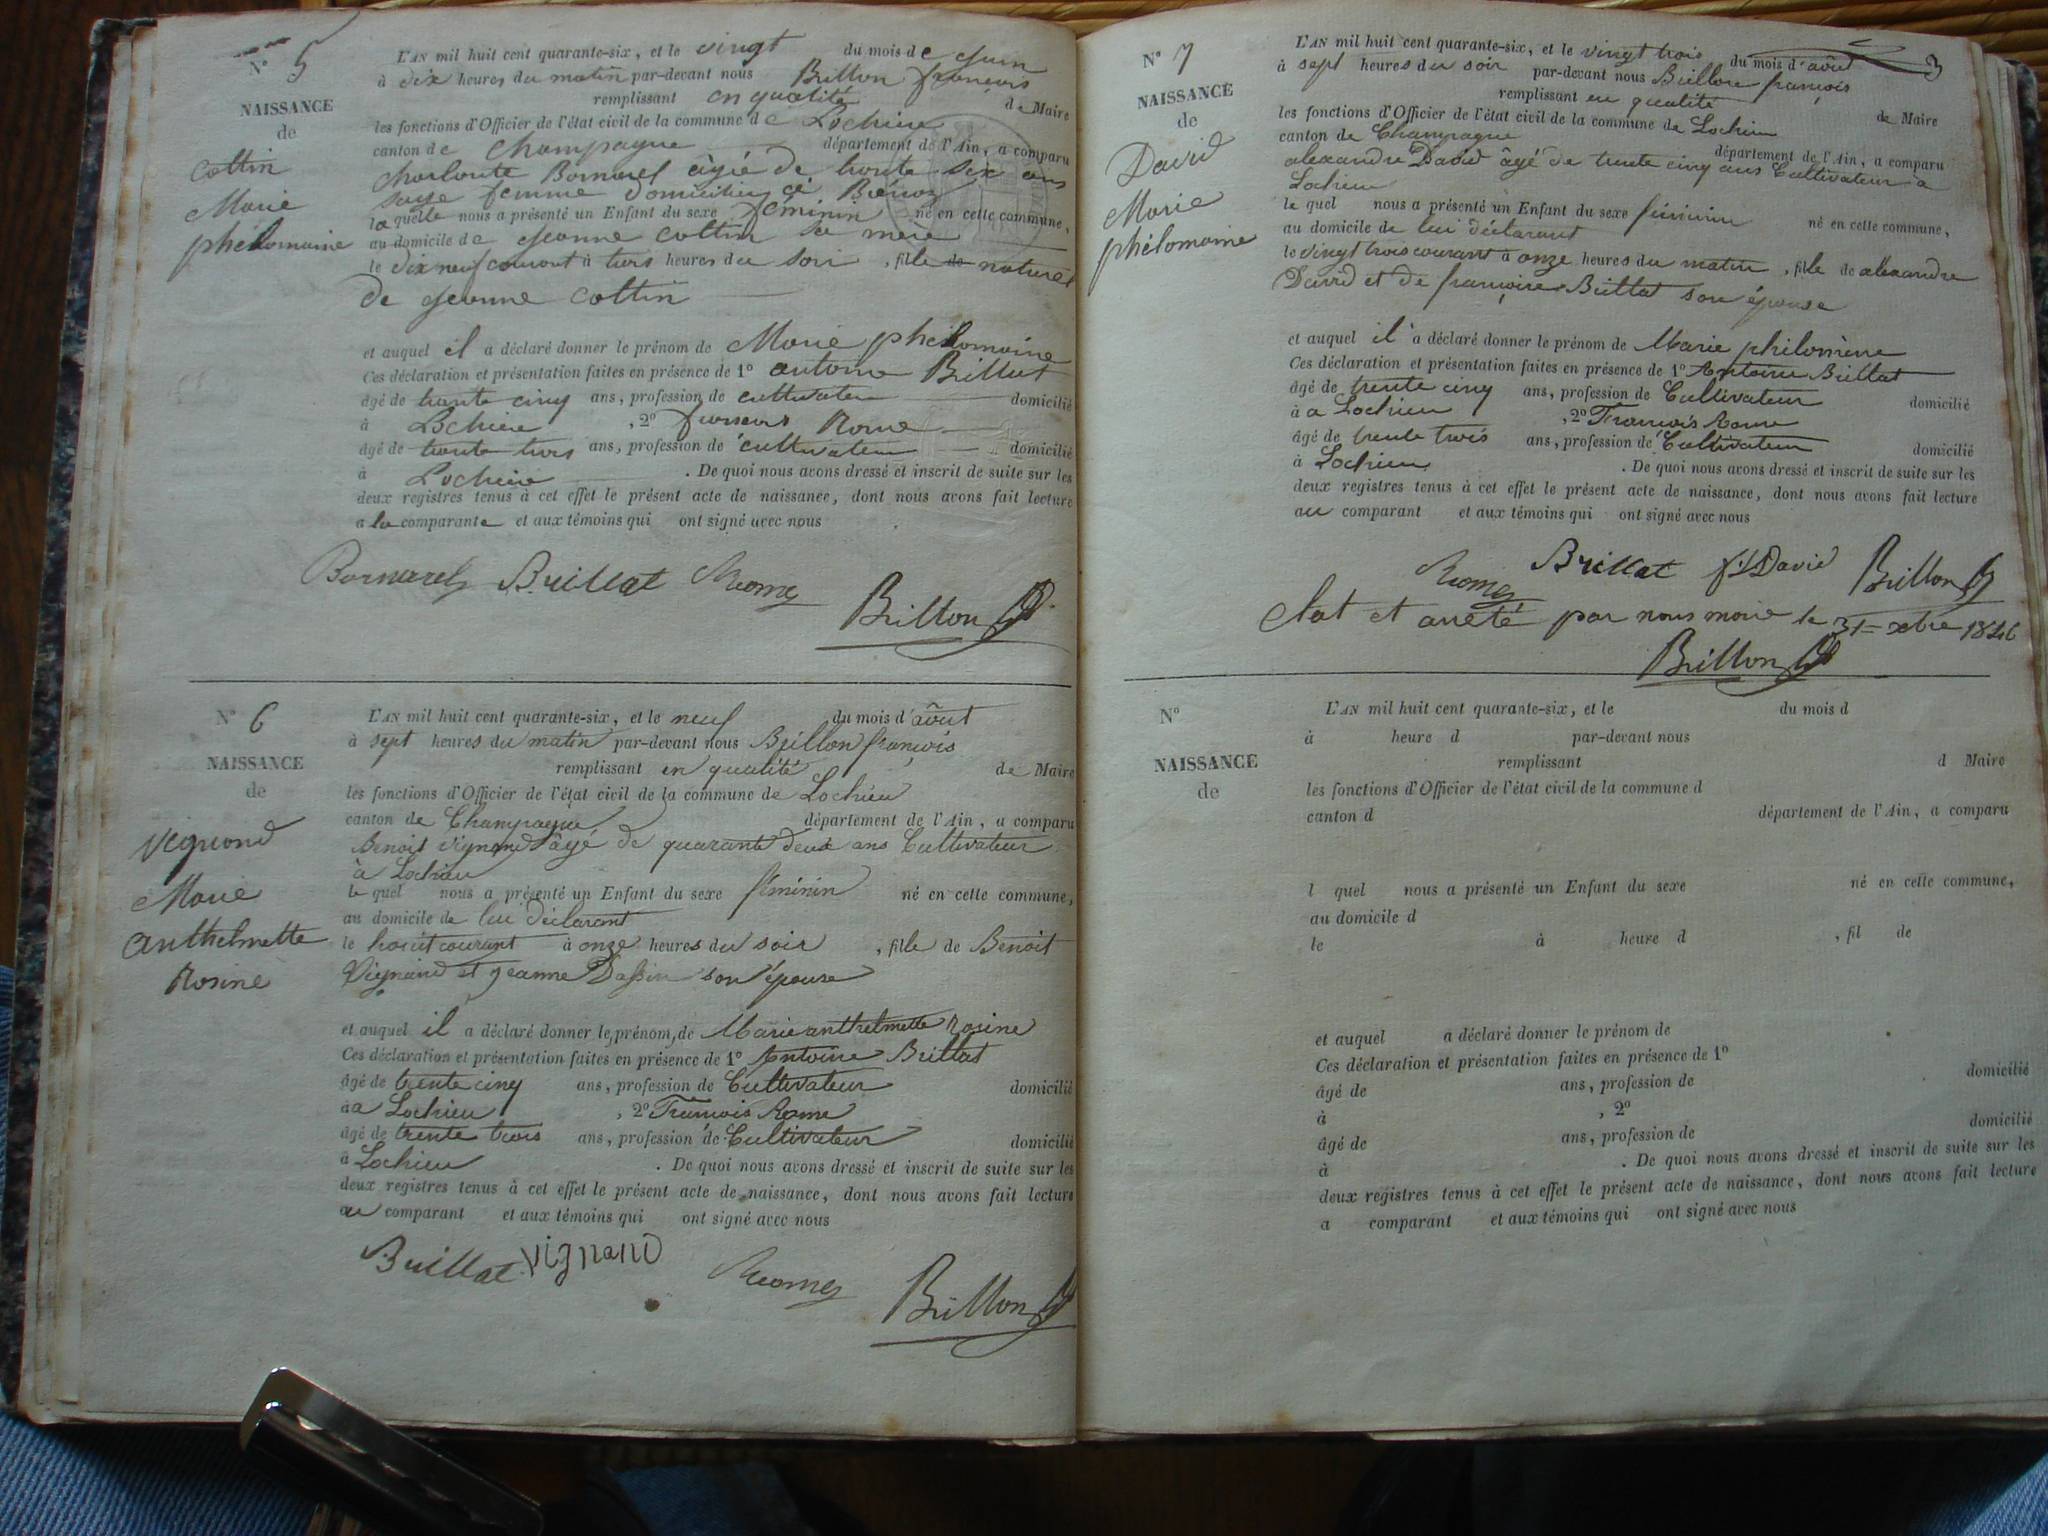 N° 5
NAISSANCE
de
Cottin
Marie
phélomaine
L'AN mil huit cent quarante-six, et le vingt du mois de Juin
à dix heures du matin par-devant nous Brillon françois
remplissant en qualité de Maire
les fonctions d'Officier de l'état civil de la commune de Lochieu
canton de Champagne département de l'Ain, a comparu
Charlotte Bornarel âgée de trente six ans
sage femme domiciliée à
laquelle nous a présenté un Enfant du sexe féminin né en cette commune,
au domicile de Jeanne Cottin sa mère
le dix neuf courant à trois heures du soir, fille de naturel
de Jeanne Cottin
et auquel il a déclaré donner le prénom de Marie phélomaine
Ces déclaration et présentation faites en présence de 1° antoine Brillat
âgé de trente cinq ans, profession de cultivateur domicilié
à Lochieu, 2° françois Rome
âgé de trente trois ans, profession de cultivateur domicilié
à Lochieu. De quoi nous avons dressé et inscrit de suite sur les
deux registres tenus à cet effet le présent acte de naissance, dont nous avons fait lecture
a la comparante et aux témoins qui ont signé avec nous
Bornarel Brillat Rome
Brillon
N° 6
NAISSANCE
de
Vignand
Marie
anthelmette
Rosine
L'AN mil huit cent quarante-six, et le neuf du mois d'août
à sept heures du matin par-devant nous Brillon françois
remplissant en qualité de Maire
les fonctions d'Officier de l'état civil de la commune de Lochieu
canton de Champagne département de l'Ain, a comparu
Benoit Vignand âgé de quarante deux ans Cultivateur
à Lochieu
le quel nous a présenté un Enfant du sexe féminin né en cette commune,
au domicile de lui déclarant
le houit courant à onze heures du soir, fille de Benoit
Vignand et Jeanne son épouse
et auquel il a déclaré donner le prénom de Marie anthelmette Rosine
Ces déclaration et présentation faites en présence de 1° Antoine Brillat
âgé de trente cinq ans, profession de Cultivateur domicilié
à a Lochieu, 2° François Rome
âgé de trente trois ans, profession de Cultivateur domicilié
à Lochieu. De quoi nous avons dressé et inscrit de suite sur les
deux registres tenus à cet effet le présent acte de naissance, dont nous avons fait lecture
au comparant et aux témoins qui ont signé avec nous
Brillat Vignand Rome
Brillon
3
N° 7
NAISSANCE
de
David
Marie
phélomaine
L'AN mil huit cent quarante-six, et le vingt trois du mois d'août
à sept heures du soir par-devant nous Brillon françois
remplissant en qualité de Maire
les fonctions d'Officier de l'état civil de la commune de Lochieu
canton de Champagne département de l'Ain, a comparu
alexandre David âgé de trente cinq ans Cultivateur a
Lochieu
le quel nous a présenté un Enfant du sexe féminin né en cette commune,
au domicile de lui déclarant
le vingt trois courant à onze heures du matin, fille de alexandre
David et de françoise Brillat son épouse
et auquel il a déclaré donner le prénom de Marie philomène
Ces déclaration et présentation faites en présence de 1° Antoine Brillat
âgé de trente cinq ans, profession de Cultivateur domicilié
à a Lochieu, 2° François Rome
âgé de trente trois ans, profession de Cultivateur domicilié
à Lochieu. De quoi nous avons dressé et inscrit de suite sur les
deux registres tenus à cet effet le présent acte de naissance, dont nous avons fait lecture
au comparant et aux témoins qui ont signé avec nous
Rome Brillat David Brillon
Clot et arrêté par nous maire le 31 xbre 1846
Brillon
N°
NAISSANCE
de
L'AN mil huit cent quarante-six, et le du mois d
à heure d par-devant nous
remplissant d Maire
les fonctions d'Officier de l'état civil de la commune d
canton d département de l'Ain, a comparu
l quel nous a présenté un Enfant du sexe né en cette commune,
au domicile d
le à heure d, fil de
et auquel a déclaré donner le prénom de
Ces déclaration et présentation faites en présence de 1°
âgé de ans, profession de domicilié
à, 2°
âgé de ans, profession de domicilié
à. De quoi nous avons dressé et inscrit de suite sur les
deux registres tenus à cet effet le présent acte de naissance, dont nous avons fait lecture
a comparant et aux témoins qui ont signé avec nous